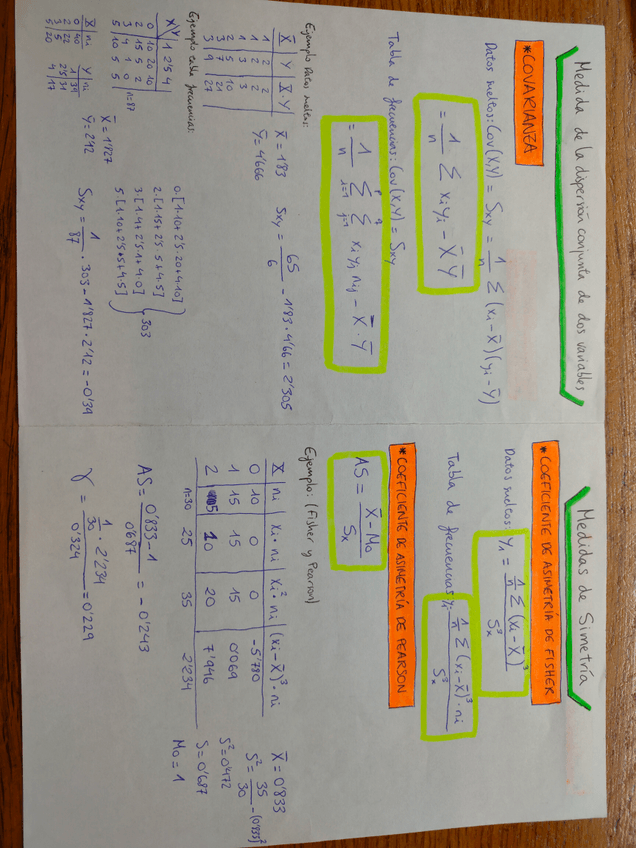 Medida de la dispersión conjunta de dos variables
*COVARIANZA
Datos sueltos: Cov(X,Y) = Sxy = 1/n Σ (xi - X̄)(yi - Ȳ)
= 1/n Σ xi yi - X̄ Ȳ
Tabla de frecuencias: Cov(X,Y) = Sxy
= 1/n Σ Σ xi yj nij - X̄ · Ȳ
Ejemplo datos sueltos:
X | Y | X·Y
1 | 2 | 2
1 | 2 | 2
1 | 3 | 3
2 | 5 | 10
3 | 7 | 21
3 | 9 | 27
X̄ = 1'83
Ȳ = 4'666
Sxy = 65/6 - 1'83 · 4'66 = 2'305
Ejemplo tabla frecuencias:
X\Y | 1 2'5 4
0 | 10 20 10
2 | 15 5 2
3 | 4 1 0
5 | 10 5 5
n=87
X | ni
0 | 40
2 | 22
3 | 5
5 | 20
Y | ni
1 | 39
2'5 | 31
4 | 17
X̄ = 1'827
Ȳ = 2'12
0·[1·10+2'5·20+4·10]
2·[1·15+2'5·5+4·5]
3·[1·4+2'5·1+4·0]
5·[1·10+2'5·5+4·5]
303
Sxy = 1/87 · 303 - 1'827 · 2'12 = -0'39
Medidas de Simetría
*COEFICIENTE DE ASIMETRÍA DE FISHER
Datos sueltos: γ1 = 1/n Σ (xi - X̄)³ / S³x
Tabla de frecuencias: γ1 = 1/n Σ (xi - X̄)³ · ni / S³x
*COEFICIENTE DE ASIMETRÍA DE PEARSON
AS = X̄ - Mo / Sx
Ejemplo: (Fisher y Pearson)
X | ni | xi·ni | xi²·ni | (xi - X̄)³·ni
0 | 10 | 0 | 0 | -5'780
1 | 15 | 15 | 15 | 0'069
2 | 5 | 10 | 20 | 7'946
n=30 | 25 | 35 | 2'234
X̄ = 0'833
S² = 35/30 - (0'833)²
S² = 0'472
S = 0'687
Mo = 1
AS = 0'833 - 1 / 0'687 = -0'243
γ = 1/30 · 2'234 / 0'324 = 0'229